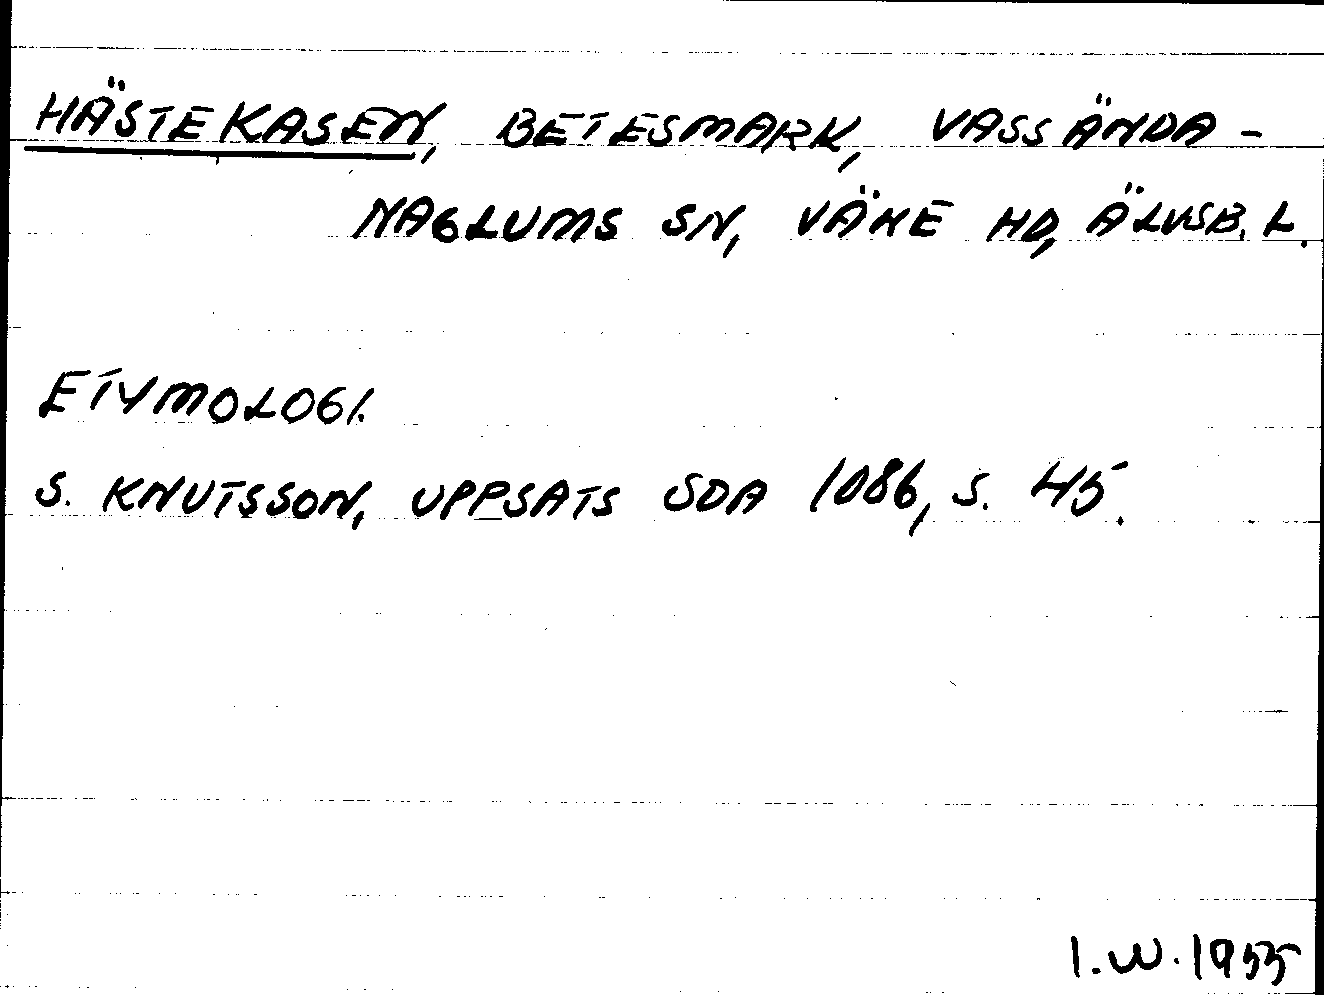 HÄSTEKASEN, BETESMARK, VASSÄNDA-
NAGLUMS SN, VÄNE HD, ÄLVSB. L.
ETYMOLOGI.
S. KNUTSSON, UPPSATS SDA 1086, S. 45.
I.W. 1955